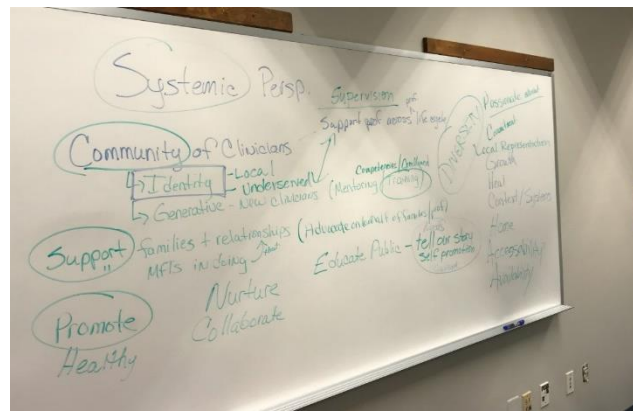 Systemic Persp.
Supervision
Support prof across life
Community of Clinicians
Identity - Local
- Underserved
Generative - New Clinicians (Mentoring Training)
Support families + relationships (Advocate on behalf of families/prof)
MFTs in doing
Educate Public - tell our story
Self promotion
Promote
Healthy
Nurture
Collaborate
Diversity
Passionate about
Local Representation
Growth
Heal
Context/Systems
Home
Accessibility
Availability